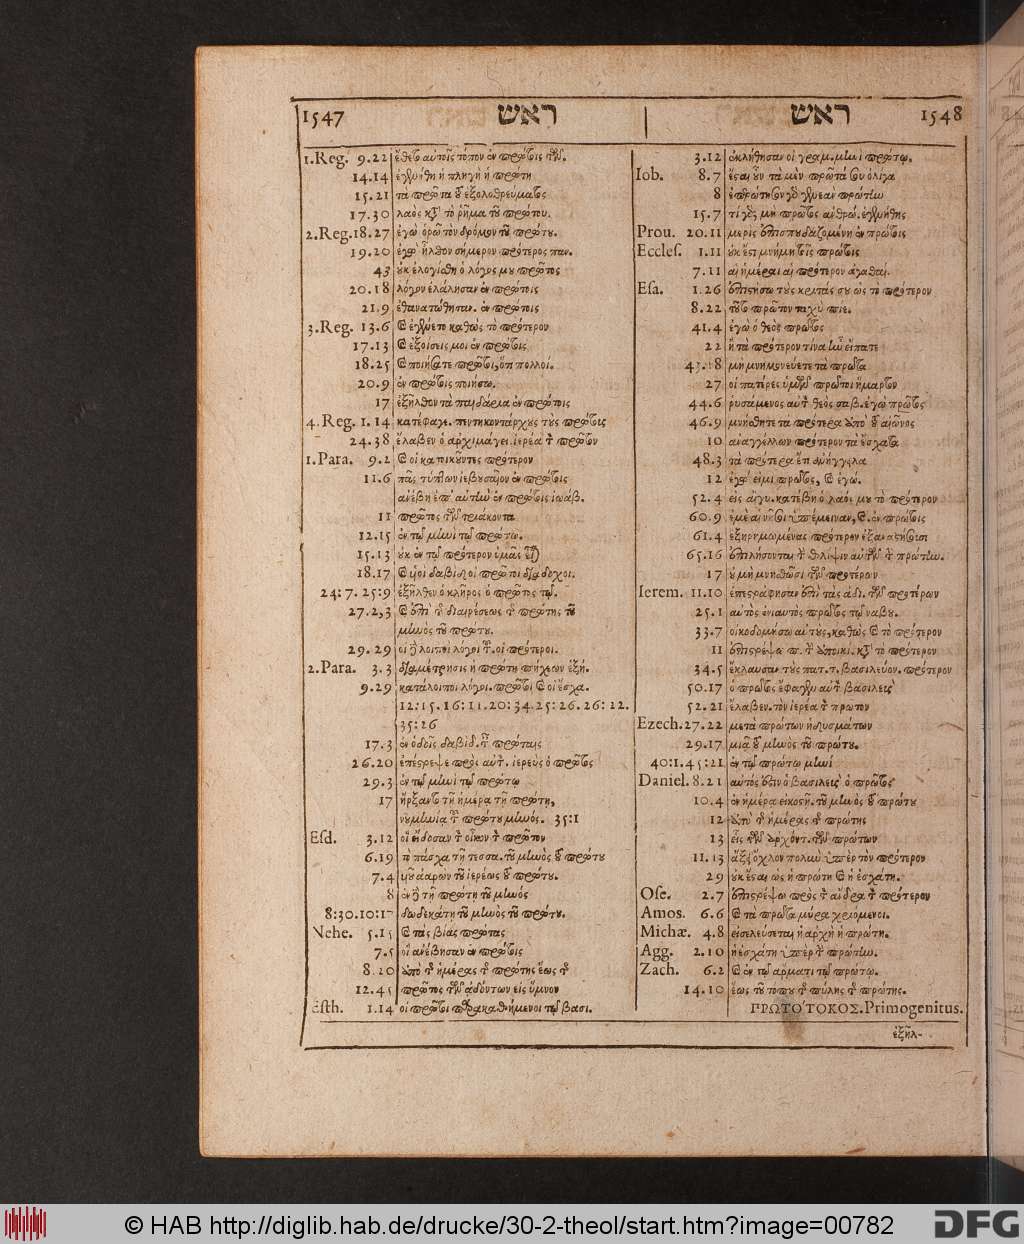 1547 ראש
1. Reg. 9.22 ἔθετο αὐτοῖς τόπον ἐν πρώτοις τῶν.
14.14 ἐγενήθη ἡ πληγὴ ἡ πρώτη
15.21 τὰ πρῶτα τοῦ ἐξολοθρεύματος
17.30 λαὸς κατὰ τὸ ῥῆμα τοῦ πρώτου.
2. Reg. 18.27 ἐγὼ ὁρῶ τὸν δρόμον τοῦ πρώτου.
19.20 ἐγὼ ἦλθον σήμερον πρότερος παν.
43 οὐκ ἐλογίσθη ὁ λόγος μου πρῶτος
20.18 λόγον ἐλάλησαν ἐν πρώτοις
21.9 ἐθανατώθησαν. ἐν πρώτοις
3. Reg. 13.6 καὶ ἐγένετο καθὼς τὸ πρότερον
17.13 καὶ ἐξοίσεις μοι ἐν πρώτοις
18.25 καὶ ποιήσατε πρῶτοι, ὅτι πολλοί.
20.9 ἐν πρώτοις ποιήσω.
17 ἐξῆλθον τὰ παιδάρια ἐν πρώτοις
4. Reg. 1.14 κατέφαγε. πεντηκοντάρχους τοὺς πρώτοις
24.38 ἔλαβεν ὁ ἀρχιμάγει. ἱερέα τὸν πρῶτον
1. Para. 9.2 καὶ οἱ κατοικοῦντες πρότερον
11.6 πᾶς τύπτων ἰεβουσαῖον ἐν πρώτοις
ἀνέβη ἐπ' αὐτὴν ἐν πρώτοις ἰωάβ.
11 πρῶτος τῶν τριάκοντα
12.15 ἐν τῷ μηνὶ τῷ πρώτῳ.
15.13 οὐκ ἐν τῷ πρότερον ὑμᾶς εἶναι
18.17 καὶ υἱοὶ δαβὶδ οἱ πρῶτοι διάδοχοι.
24:7. 25:9 ἐξῆλθεν ὁ κλῆρος ὁ πρῶτος τῷ.
27.2,3 καὶ ἐπὶ τῆς διαιρέσεως τῆς πρώτης τοῦ
μηνὸς τοῦ πρώτου.
29.29 οἱ δὲ λοιποὶ λόγοι τοῦ. οἱ πρότεροι.
2. Para. 3.3 διαμέτρησις ἡ πρώτη πήχεων ἑξή.
9.29 κατάλοιποι λόγοι. πρῶτοι καὶ οἱ ἔσχα.
12:15. 16:11. 20:34. 25:26. 26:22.
35:26
17.3 ἐν ὁδοῖς δαβὶδ. ταῖς πρώταις
26.20 ἐπέστρεψε πρὸς αὐτ. ἱερεὺς ὁ πρῶτος
29.3 ἐν τῷ μηνὶ τῷ πρώτῳ
17 ἤρξαντο τῇ ἡμέρα τῇ πρώτη,
νουμηνία τοῦ πρώτου μηνός. 35:1
Esd. 3.12 οἳ εἴδοσαν τὸν οἶκον τὸν πρῶτον
6.19 τὸ πάσχα τῇ τεσσα. τοῦ μηνὸς τοῦ πρώτου
7.4 υἱοῦ ἀαρὼν τοῦ ἱερέως τοῦ πρώτου.
8 ἐν δὲ τῇ πρώτη τοῦ μηνός
8:30. 10:17 δωδεκάτη τοῦ μηνὸς τοῦ πρώτου.
Nehe. 5.15 καὶ τὰς βίας πρώτας
7.5 οἳ ἀνέβησαν ἐν πρώτοις
8.20 ἀπὸ τῆς ἡμέρας τῆς πρώτης ἕως τῆς
12.45 πρῶτος τῶν ἀδόντων εἰς ὕμνον
Esth. 1.14 οἱ πρῶτοι παρακαθήμενοι τῷ βασι.
ראש 1548
3.12 ἐκλήθησαν οἱ γραμ. μηνὶ πρώτῳ.
Iob. 8.7 ἔσται οὖν τὰ μὲν πρῶτά σου ὀλίγα
8 ἐπερώτησον γὰρ γενεὰν πρώτην
15.7 τί γάρ; μὴ πρῶτος ἀνθρώ. ἐγενήθης
Prou. 20.11 μερὶς ἐπισπουδαζομένη ἐν πρώτοις
Eccles. 1.11 οὐκ ἔστι μνήμη τοῖς πρώτοις
7.11 αἱ ἡμέραι αἱ πρότερον ἀγαθαί.
Esa. 1.26 ἐπιστήσω τοὺς κριτάς σου ὡς τὸ πρότερον
8.22 τοῦτο πρῶτον ταχὺ πίε.
41.4 ἐγὼ ὁ θεὸς πρῶτος
22 ἢ τὰ πρότερον τίνα ἦν εἴπατε
43.18 μὴ μνημονεύετε τὰ πρῶτα
27 οἱ πατέρες ὑμῶν πρῶτοι ἥμαρτον
44.6 ῥυσάμενος αὐτὸν θεὸς σαβ. ἐγὼ πρῶτος
46.9 μνήσθητε τὰ πρότερα ἀπὸ τοῦ αἰῶνος
10 ἀναγγέλλων πρότερον τὰ ἔσχατα
48.3 τὰ πρότερα ἔτι ἀνήγγειλα
12 ἐγώ εἰμι πρῶτος, καὶ ἐγώ.
52.4 εἰς αἴγυ. κατέβη ὁ λαός μου τὸ πρότερον
60.9 ἐμὲ αἱ νῆσοι ὑπέμειναν, καὶ. ἐν πρώτοις
61.4 ἐξηρημωμένας πρότερον ἐξαναστήσουσι
65.16 ἐπιλήσονται τὴν θλίψιν αὐτῶν τὴν πρώτην.
17 οὐ μὴ μνησθῶσι τῶν προτέρων
Ierem. 11.10 ἐπεστράφησαν ἐπὶ τὰς ἀδι. τῶν προτέρων
25.1 αὐτὸς ἐνιαυτὸς πρῶτος τῷ ναβου.
33.7 οἰκοδομήσω αὐτούς, καθὼς καὶ τὸ πρότερον
11 ἐπιστρέψω π. τὴν ἀποικί. κατὰ τὸ πρότερον
34.5 ἔκλαυσαν τοὺς πατ. τ. βασιλεύον. πρότερον
50.17 ὁ πρῶτος ἔφαγεν αὐτὸν βασιλεὺς
52.21 ἔλαβεν. τὸν ἱερέα τὸν πρῶτον
Ezech. 27.22 μετὰ πρώτων ἡδυσμάτων
29.17 μιᾷ τοῦ μηνὸς τοῦ πρώτου.
40:1. 45:21 ἐν τῷ πρώτῳ μηνὶ
Daniel. 8.21 αὐτός ἐστιν ὁ βασιλεὺς ὁ πρῶτος
10.4 ἐν ἡμέρα εἰκοστῇ. τοῦ μηνὸς τοῦ πρώτου
12 ἀπὸ τῆς ἡμέρας τῆς πρώτης
13 εἷς τῶν ἀρχόντ. τῶν πρώτων
11.13 ἄξει ὄχλον πολὺν ὑπὲρ τὸν πρότερον
29 οὐκ ἔσται ὡς ἡ πρώτη καὶ ἡ ἐσχάτη.
Ose. 2.7 ἐπιστρέψω πρὸς τὸν ἄνδρα τὸν πρότερον
Amos. 6.6 καὶ τὰ πρῶτα μύρα χριόμενοι.
Michæ. 4.8 εἰσελεύσεται ἡ ἀρχὴ ἡ πρώτη.
Agg. 2.10 ἡ ἐσχάτη ὑπὲρ τὴν πρώτην.
Zach. 6.2 καὶ ἐν τῷ ἅρματι τῷ πρώτῳ.
14.10 ἕως τοῦ τόπου τῆς πύλης τῆς πρώτης.
ΠΡΩΤΟ'ΤΟΚΟΣ. Primogenitus.
ἐξῆλ-
© HAB http://diglib.hab.de/drucke/30-2-theol/start.htm?image=00782
DFG